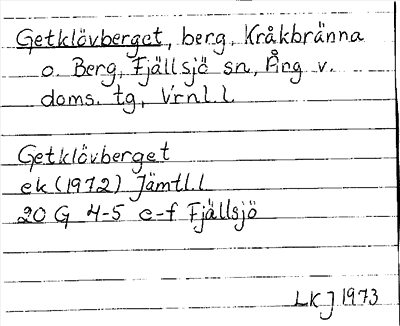 Getklövberget, berg, Kråkbränna
o. Berg, Fjällsjö sn, Ång v.
doms. tg, Vrnl.l.
Getklövberget
ek (1972) Jämtl.l
20 G 4-5 e-f Fjällsjö
LKJ 1973